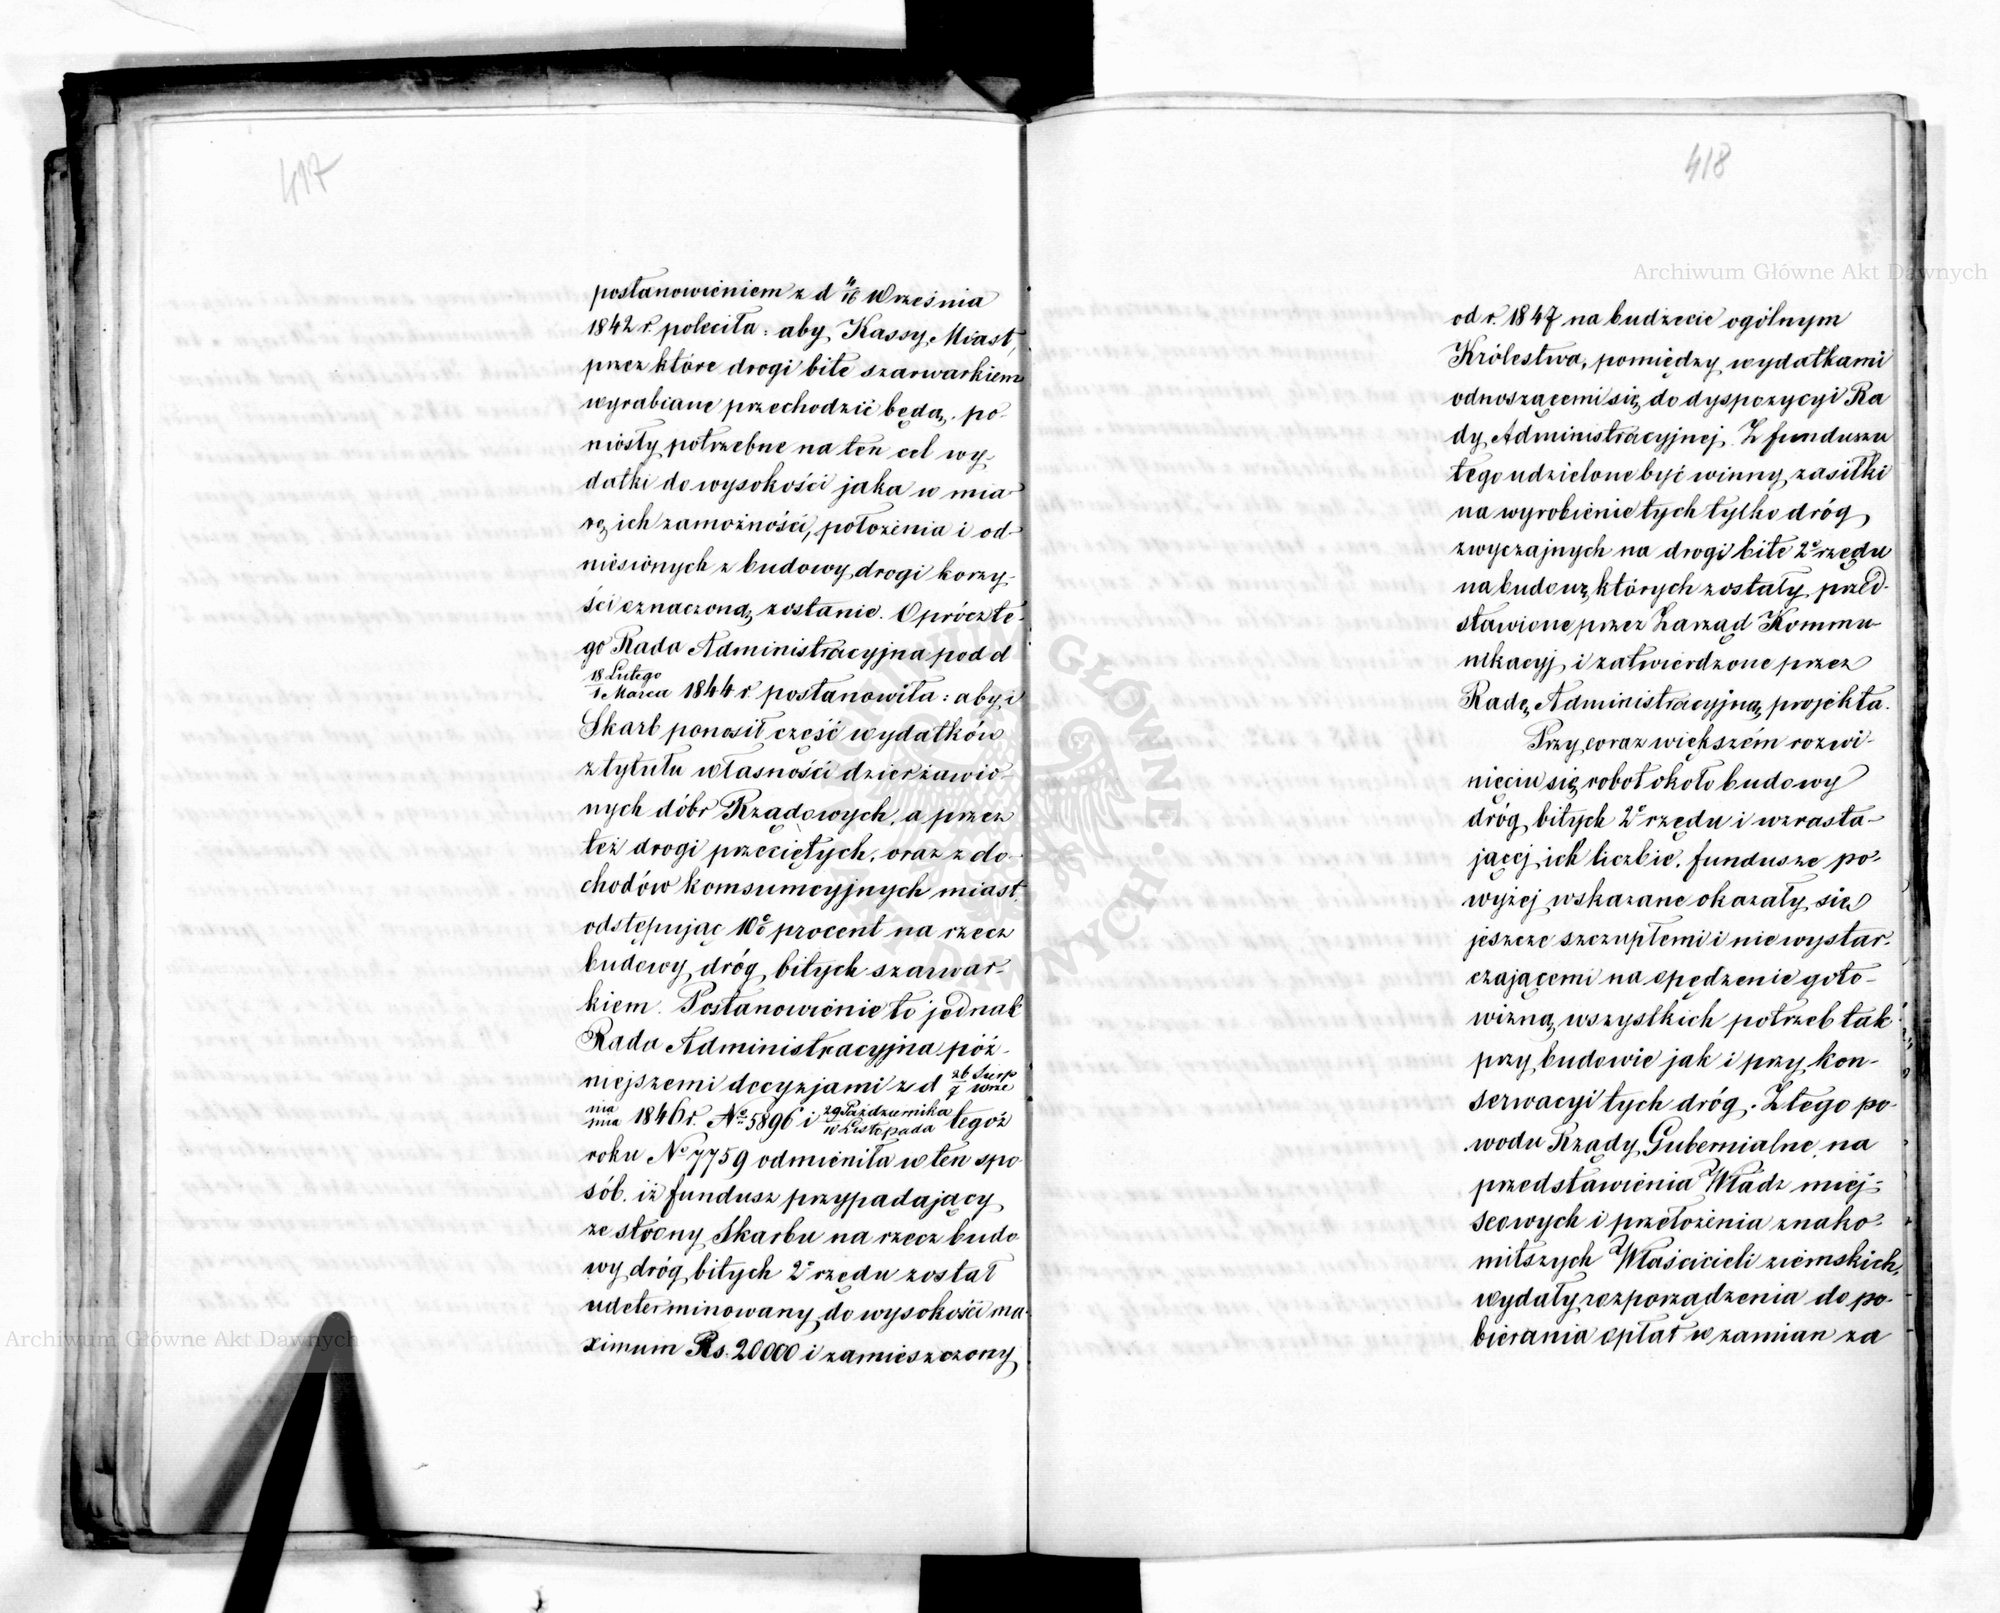 417
postanowieniem z d 4/16 Września
1842 r. poleciła: aby Kassy Miast,
przez które drogi bite szarwarkiem
wyrabiane przechodzić będą, po-
niosły potrzebne na ten cel wy-
datki do wysokości jaka w mia-
rę ich zamożności, położenia i od-
niesionych z budowy drogi korzy-
ści oznaczoną zostanie. Oprócz te-
go Rada Administracyjna pod d
18 Lutego
1 Marca 1844 r. postanowiła: aby i
Skarb ponosił część wydatków
z tytułu własności dzierżawio-
nych dóbr Rządowych, a przez
też drogi przeciętych, oraz z do-
chodów konsumcyjnych miast,
odstępując 10% procent na rzecz
budowy dróg bitych szarwar-
kiem. Postanowienie to jednak
Rada Administracyjna póź-
niejszemi decyzjami z d 26 Sierp
7 Wrze
nia
nia 1846 r. No 5896 i 29 Października
10 Listopada tegoż
roku No 7759 odmieniła w ten spo-
sób, iż fundusz przypadający
ze strony Skarbu na rzecz budo
wy dróg bitych 2o rzędu został
udeterminowany do wysokości ma-
ximum Rs. 20000 i zamieszczony
418
od r. 1847 na budżecie ogólnym
Królestwa, pomiędzy wydatkami
odnoszącemi się do dyspozycyi Ra
dy Administracyjnej. Z funduszu
tego udzielone być winny zasiłki
na wyrobienie tych tylko dróg
zwyczajnych na drogi bite 2o rzędu
na budowę których zostały przed-
stawione przez Zarząd Kommu-
nikacyj, i zatwierdzone przez
Radę Administracyjną projekta.
Przy coraz większém rozwi-
nięciu się robot około budowy
dróg bitych 2o rzędu i wzrasta-
jącej ich liczbie, fundusze po-
wyżej wskazane okazały się
jeszcze szczupłemi i nie wystar-
czającemi na opędzenie goto-
wizną wszystkich potrzeb tak
przy budowie jak i przy kon-
serwacyi tych dróg. Z tego po-
wodu Rządy Gubernialne na
przedstawienia Władz miej-
scowych i przełożenia znako-
mitszych Właścicieli ziemskich,
wydały rozporządzenia do po-
bierania opłat w zamian za
Archiwum Główne Akt Dawnych
Archiwum Główne Akt Dawnych
ARCHIWUM GŁÓWNE AKT DAWNYCH